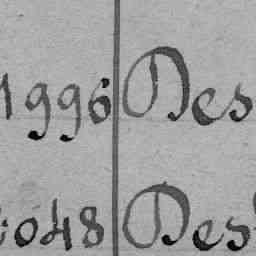 1996 Des
:048 Des